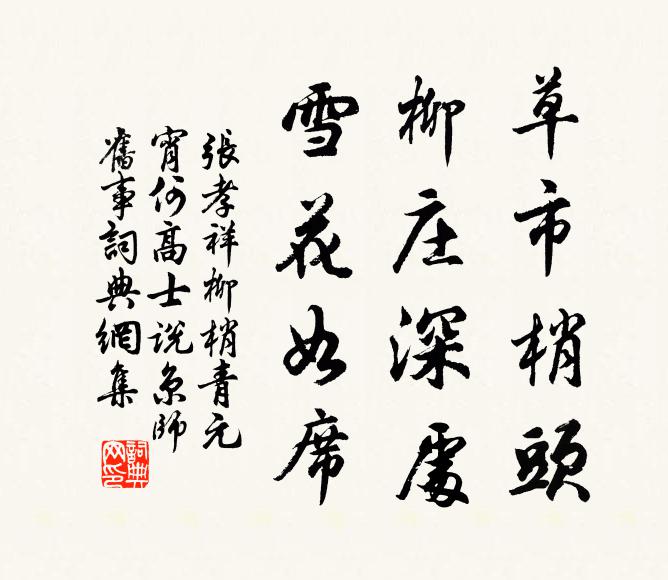 草市梢頭
柳庄深處
雪花如席
張孝祥柳梢青元
宵何高士説京師
舊事詞典網集
詞典
网印